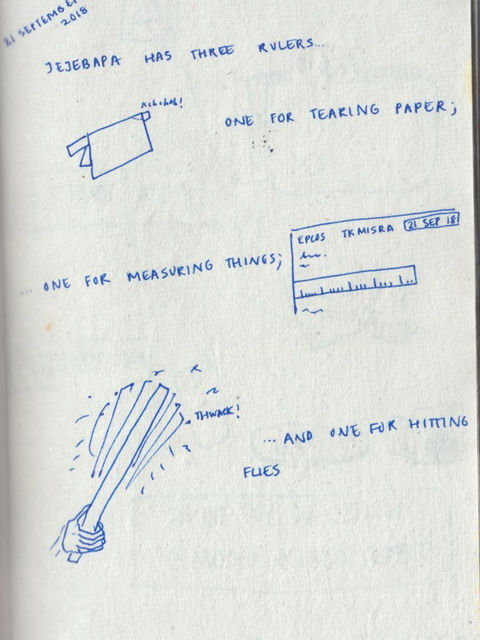 21 SEPTEMBER
2018
JEJEBAPA HAS THREE RULERS...
ONE FOR TEARING PAPER;
EPCOS TKMISRA 21 SEP 18
... ONE FOR MEASURING THINGS;
THWACK!
...AND ONE FOR HITTING
FLIES